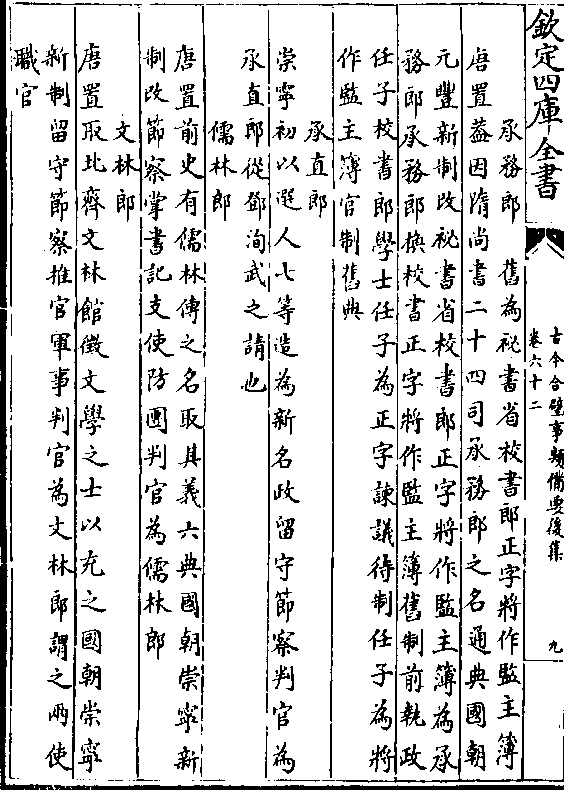 欽定四庫全書
古今合璧事類備要後集
卷六十二
九
承務郎　舊為祕書省校書郎正字將作監主簿
唐置葢因隋尚書二十四司承務郎之名通典國朝
元豐新制改祕書省校書郎正字將作監主簿為承
務郎承務郎換校書正字將作監主簿舊制前執政
任子校書郎學士任子為正字諫議待制任子為將
作監主簿官制舊典
承直郎
崇寧初以選人七等造為新名改留守節察判官為
承直郎從鄧洵武之請也
儒林郎
唐置前史有儒林傳之名取其義六典國朝崇寧新
制改節察掌書記支使防團判官為儒林郎
文林郎
唐置取北齊文林館徵文學之士以充之國朝崇寧
新制留守節察推官軍事判官為文林郎謂之兩使
職官